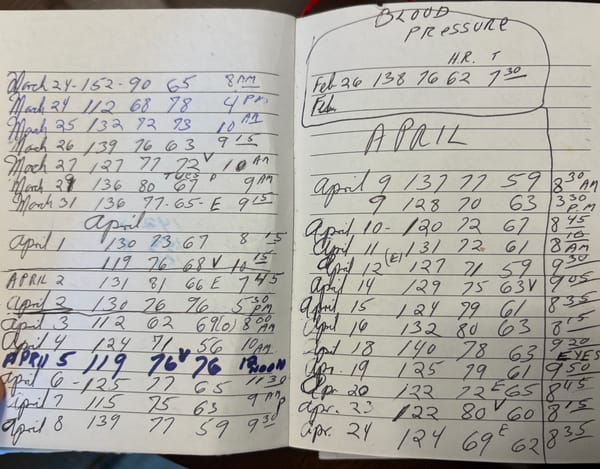 March 24-152-90 65 8 AM
March 24 112 68 78 4 PM
March 25 132 72 73 10 AM
March 26 139 76 63 9 15
March 27 127 77 72 V 10 AM
March 29 136 80 67 9 AM
March 31 136 77-65-E 9 15
April
April 1 130 73 67 8 15
119 76 68 V 10 15
APRIL 2 131 81 66 E 7 45
April 2 130 76 96 5 30 PM
April 3 112 62 69(0) 8 00 AM
April 4 124 71 56 10 AM
APRIL 5 119 76 V 76 12 NOON
April 6-125 77 65 11 30
April 7 115 75 63 9 AM
April 8 139 77 59 9 30
BLOOD
PRESSURE
H.R. T
Feb 26 138 76 62 7 30
Feb
APRIL
April 9 137 77 59 8 30 AM
9 128 70 63 3 30 P.M
April 10-120 72 67 8 45
April 11 131 72 61 8 10 AM
April 12 (E) 127 71 59 9 30
April 14 129 75 63 V 9 05
April 15 124 79 61 8 35
April 16 132 80 63 8 15
April 18 140 78 63 9 20
EYES
Apr. 19 125 79 61 9 50
Apr. 20 122 72 E 65 8 45
Apr. 23 122 80 V 60 8 15
Apr. 24 124 69 E 62 8 35